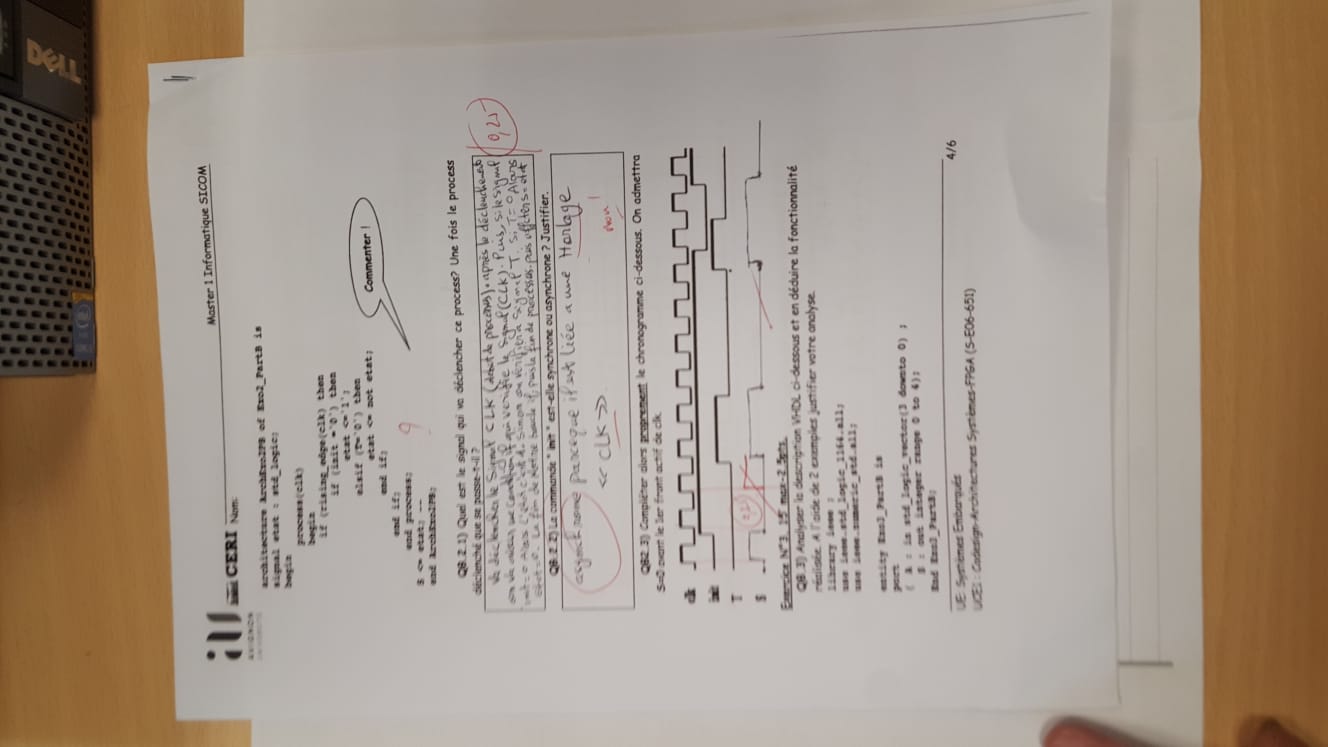 DELL
ilS
CERI Nom:
Master 1 Informatique SICOM
architecture ArchExo2PB of Exo2_PartB is
signal etat : std_logic;
begin
process(clk)
begin
if (rising_edge(clk) then
if (init ='0') then
etat <='1';
elsif (T='0') then
etat <= not etat;
end if;
end if;
end process;
S <= etat;
end ArchExo2PB;
Commenter !
QB.2.1) Quel est le signal qui va déclencher ce process? Une fois le process
déclenché que se passe-t-il ?
Va déclencher le Signal CLK (début de process). après le déclenchement
on va alors une Condition if qui vérifie le Signal (CLK). Puis, si le signal
init = 0 Alors etat Sinon on vérifiera Signal T. Si T = 0 Alors
0,25
QB.2.2) La commande " init " est-elle synchrone ou asynchrone ? Justifier.
asynchrone parceque il est liée a une Horloge
<< CLK >>
non !
QB2.3) Compléter alors proprement le chronogramme ci-dessous. On admettra
S=0 avant le 1er front actif de clk
clk
init
T
S
Exercice N°3 15' max-2.5pts
QB.3) Analyser la description VHDL ci-dessous et en déduire la fonctionnalité
réalisée. A l'aide de 2 exemples justifier votre analyse.
library ieee ;
use ieee.std_logic_1164.all;
use ieee.numeric_std.all;
entity Exo3_PartB is
port
( A : in std_logic_vector(3 downto 0) ;
S : out integer range 0 to 4);
End Exo3_PartB;
UE: Systèmes Embarqués
UCE1 : Codesign-Architectures Systèmes-FPGA (S-E06-651)
4/6